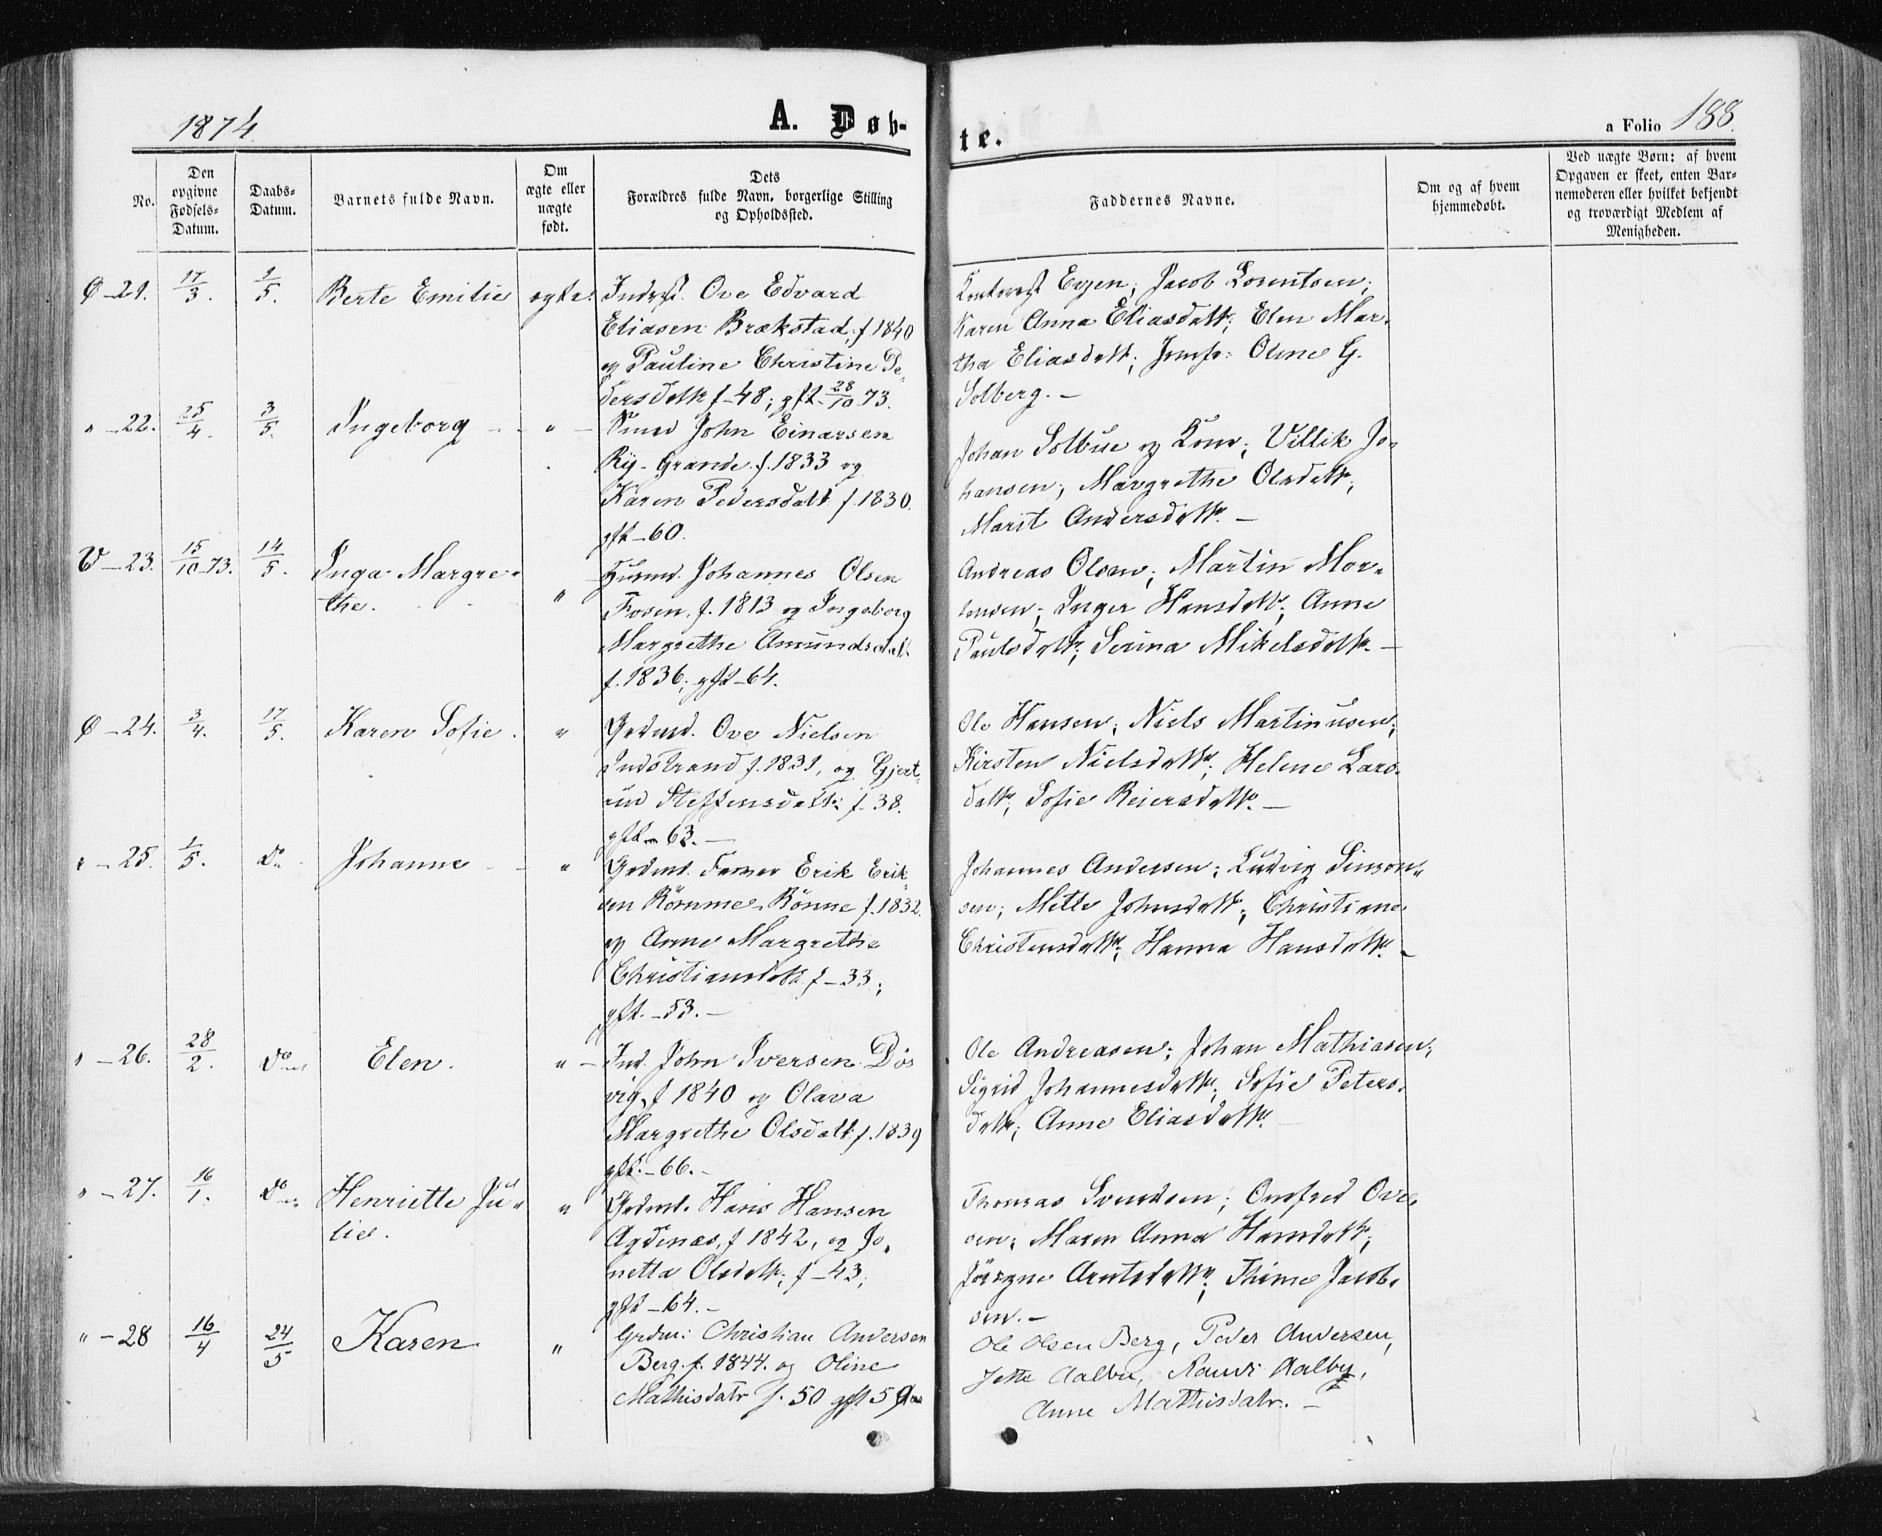 1874
A. Døb-
te.
a Folio 188.
No.
Den opgivne Fødsels-Datum.
Daabs-Datum.
Barnets fulde Navn.
Om ægte eller uægte født.
Dets Forældres fulde Navn, borgerlige Stilling og Opholdssted.
Faddernes Navne.
Om og af hvem hjemmedøbt.
Ved uægte Børn: af hvem Opgaven er skeet, enten Barnemoderen eller hvilket bekjendt og troværdigt Medlem af Menigheden.
Ø - 21. 17/3. 1/5. Berte Emilie ægte. Inderst. Ove Edvard
Eliasen Brækstad, f 1840
og Pauline Christine Pe-
dersdatt f - 48; gft. 28/10 73.
Evjen; Jacob Lorentsen;
Karen Anna Eliasdatt; Elen Mar-
tha Eliasdatt; Jomfr: Oline G.
Solberg. -
" - 22. 25/4. 3/5. Ingeborg " - Smed John Einarsen
Ry - Grande f. 1833 og
Karen Pedersdatt f. 1830.
gft - 60.
Johan Solbue og Kone; Villik Jo-
hansen; Margrethe Olsdatt;
Marit Andersdatt. -
V - 23. 15/10 - 73. 14/5. Inga Margre-
the. " Husmd. Johannes Olsen
Fosen, f. 1813 og Ingeborg
Margrethe Amundsdatt.
f. 1836; gft - 64.
Andreas Olsen; Martin Mor-
tensen; Inger Hansdatt; Anne
Paulsdatt; Serina Mikelsdatt. -
Ø - 24. 3/4. 17/5. Karen Sofie. " Grdmd. Ove Nielsen
Indstrand f. 1831, og Gjert-
rud Steffensdatt: f - 38.
gft - 63. -
Ole Hansen; Niels Martinusen;
Kirsten Nielsdatt; Helene Lars-
datt; Sofie Reiersdatt. -
" - 25. 1/5. Do Johanne - " Grdmd. Farver Erik Erik-
sen Römme - Rönne f. 1832.
og Anne Margrethe
Christiansdatt f - 33;
gft. - 53. -
Johannes Andersen; Ludvig Simon-
sen; Mette Johnsdatt; Christiane
Christensdatt; Hanna Hansdatt. -
" - 26. 28/2. Do Elen. " - Ind. John Iversen Døs
vig, f 1840 og Olava
Margrethe Olsdatt f. 1839
gft. - 66. -
Ole Andreasen; Johan Mathiasen;
Sigrid Johannesdatt; Sofie Peters-
datt; Anne Eliasdatt. -
" - 27. 16/1. Do Henriette Ju-
lie. " Grdmd. Hans Hansen
Agdenæs, f 1842, og Jo-
netta Olsdatt; f - 43;
gft - 64. -
Thomas Svendsen; Omfred Ove-
sen; Maren Anna Hansdatt;
Jörgine Arntsdatt; Thine Jacob-
sen. -
" - 28 16/4 24/5 Karen " Grdm: Christian Andersen
Berg. f. 1844. og Oline
Mathisdatr f. 50 gft
Ole Olsen Berg, Peder Andersen,
Jette Aalbu, Randi Aalby,
Anne Mathisdatr. -